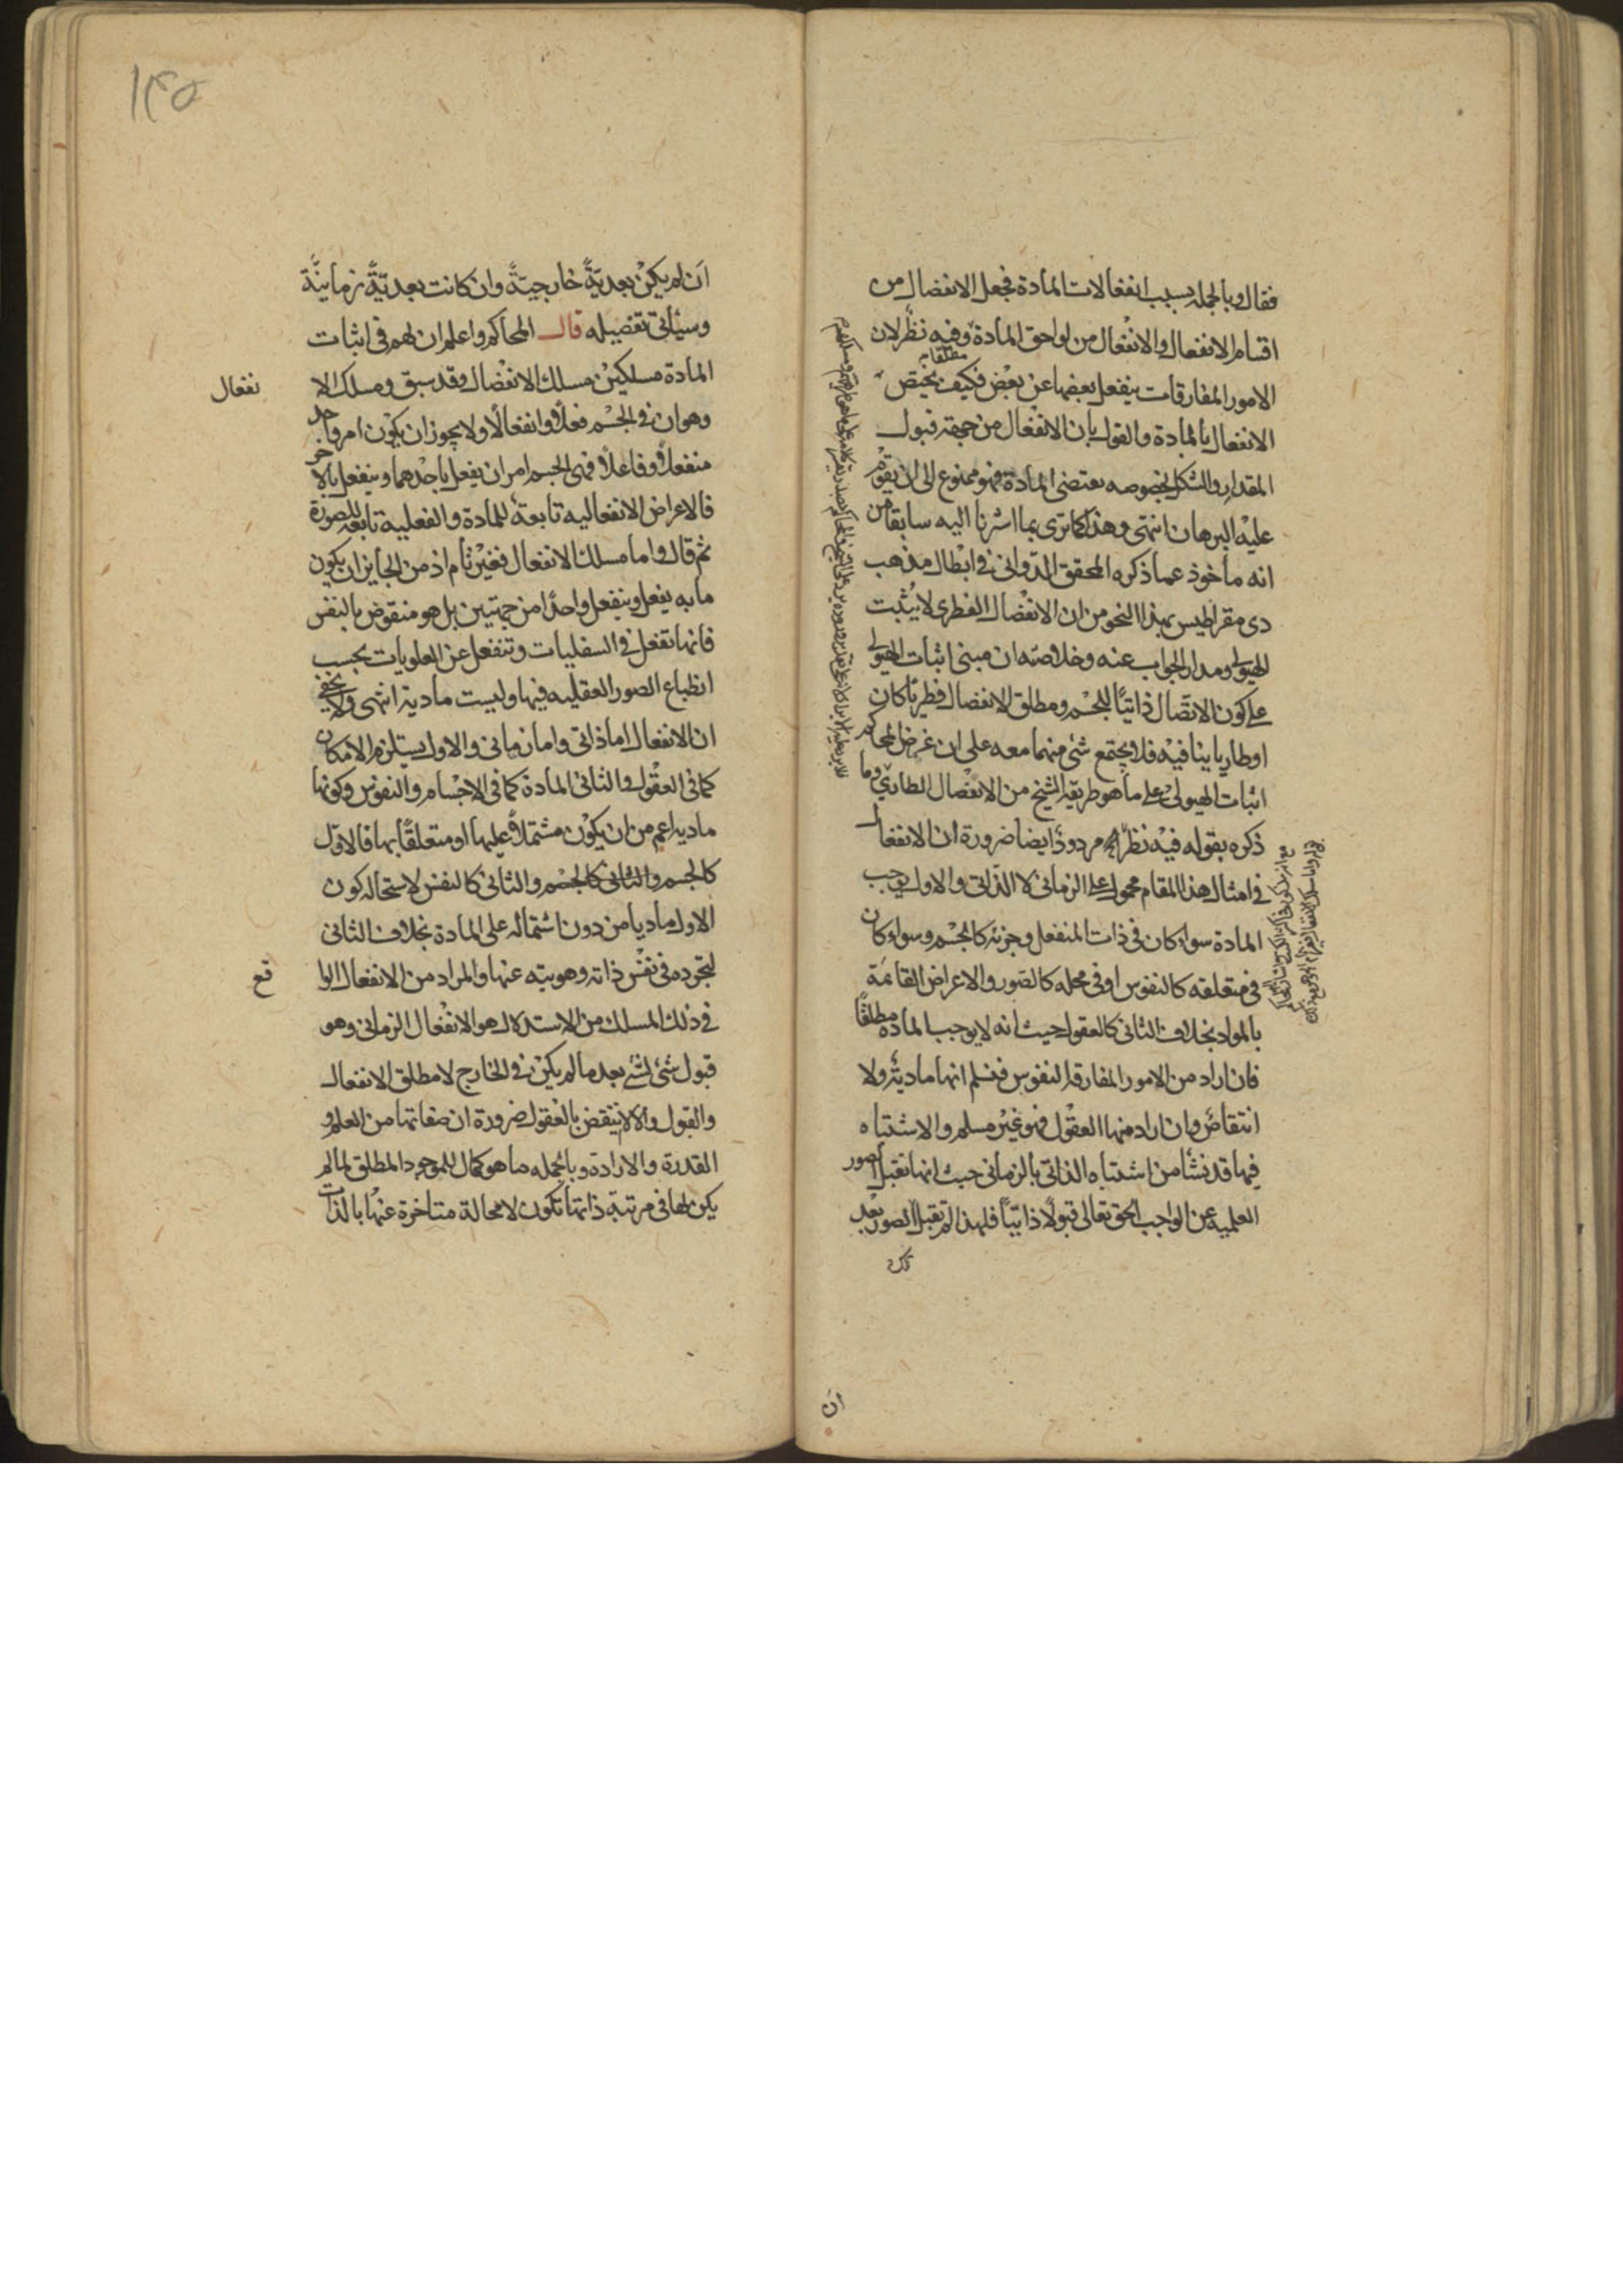 فقال وبالجملة بسبب انفعالات المادة فجعل الانفصال من
اقسام الانفعال والانفعال من لواحق المادة وفيه نظر لان
الامور المفارقات ينفعل بعضها عن بعض فكيف يختص
مطلقا
الانفعال بالمادة والقول بان الانفعال من جهة قبول
المقدار والشكل بخصوصه يقتضى المادة فهو ممنوع الى ان يقوم
عليه البرهان انتهى وهذا كما ترى بما اشرنا اليه سابقا من
انه مأخوذ عما ذكره المحقق الدوانى فى ابطال مذهب
ذى مقراطيس بهذا النحو من ان الانفصال الفطرى لا يثبت
الهيولى ومدار الجواب عنه وخلاصته ان مبنى اثبات الهيولى
على كون الاتصال ذاتيا للجسم ومطلق الانفصال فطريا كان
او طاريا ينافيه فلا يجتمع شئ منهما معه على ان غرض المحاكم
اثبات الهيولى على ما هو طريقة الشيخ من الانفصال الطارى وما
ذكره بقوله فيه نظر مردود ايضا ضرورة ان الانفعال
فى امثال هذا المقام محمول على الزمانى لا الذاتى والاول يوجب
المادة سواء كان فى ذات المنفعل وجزئه كالجسم وسواء كان
فى متعلقه كالنفوس او فى محله كالصور والاعراض القائمة
بالمواد بخلاف الثانى كالعقول حيث انه لا يوجب المادة مطلقا
فان اراد من الامور المفارقة النفوس فنسلم انها مادية ولا
انتقاض وان اراد منها العقول فهو غير مسلم والاشتباه
فيها قد نشأ من اشتباه الذاتى بالزمانى حيث انها تقبل الصور
العلمية عن الواجب الحق تعالى قبولا ذاتيا فلهذا لم تقبل الصور بعد
ان
ان لم يكن بعدية خارجية وان كانت بعدية زمانية
وسيأتى تفصيله قال المحاكم واعلم ان لهم فى اثبات
المادة مسلكين مسلك الانفصال وقد سبق ومسلك الا
نفعال
وهو ان فى الجسم فعلا وانفعالا ولا يجوز ان يكون امر واحد
منفعلا وفاعلا ففى الجسم امران يفعل باحدهما وينفعل بالاخر
فالاعراض الانفعاليه تابعة للمادة والفعلية تابعة للصورة
ثم قال واما مسلك الانفعال فغير تام اذ من الجايز ان يكون
ما به يفعل وينفعل واحدا من جهتين بل هو منقوض بالنفس
فانها تفعل فى السفليات وتنفعل عن العلويات بحسب
انطباع الصور العقليه فيها وليست مادية انتهى ولا يخفى
ان الانفعال اما ذاتى واما زمانى والاول يستلزم الامكان
كما فى العقول والثانى المادة كما فى الاجسام والنفوس وكونها
ماديه اعم من ان يكون مشتملا عليها او متعلقا بها فالاول
كالجسم والثانى كالجسم والثانى كالنفس لاستحاله كون
الاول ماديا من دون اشتماله على المادة بخلاف الثانى
لتجرده فى نفس ذاته وهويته عنها والمراد من الانفعال الوا
قع
فى ذلك المسلك من الاستدلال هو الانفعال الزمانى وهو
قبول شئ لشئ بعد ما لم يكن فى الخارج لا مطلق الانفعال
والقبول والا لانتقض بالعقول ضرورة ان صفاتها من العلم و
القدرة والارادة وبالجمله ما هو كمال للموجود المطلق لما لم
يكن لها فى مرتبة ذاتها تكون لا محالة متاخرة عنها بالذات